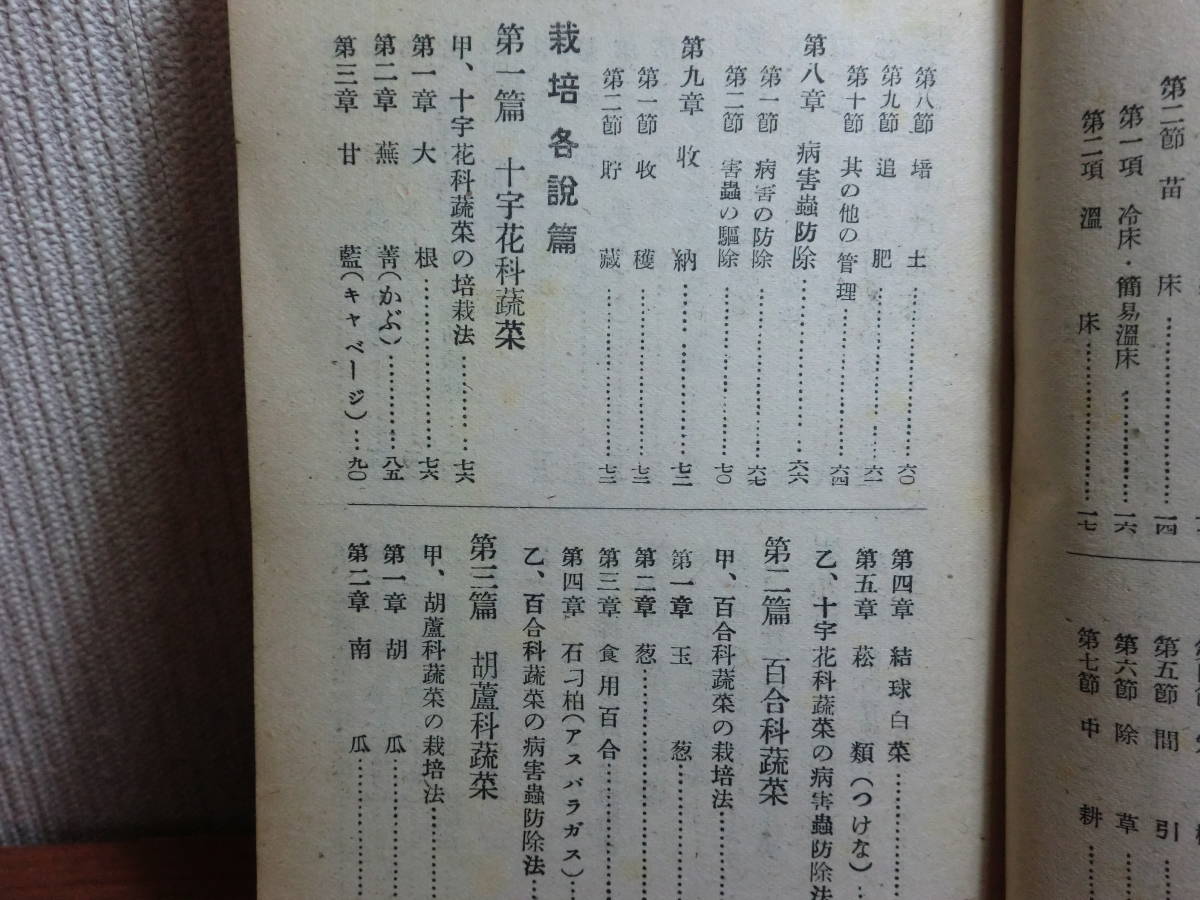 第二節 苗床……一四
第一項 冷床・簡易溫床……一六
第二項 溫床……一七
第五節 間引…
第六節 除草…
第七節 中耕…
第八節 培土……六〇
第九節 追肥……六一
第十節 其の他の管理……六四
第八章 病害蟲防除……六六
第一節 病害の防除……六七
第二節 害蟲の驅除……七〇
第九章 收納……七二
第一節 收穫……七二
第二節 貯藏……七二
栽培各說篇
第一篇 十字花科蔬菜
甲、十字花科蔬菜の培栽法……七六
第一章 大根……七六
第二章 蕪菁(かぶ)……八五
第三章 甘藍(キャベージ)…九〇
第四章 結球白菜…
第五章 菘類(つけな)…
乙、十字花科蔬菜の病害蟲防除法
第二篇 百合科蔬菜
甲、百合科蔬菜の栽培法…
第一章 玉葱…
第二章 葱…
第三章 食用百合…
第四章 石刁柏(アスパラガス)…
乙、百合科蔬菜の病害蟲防除法…
第三篇 胡蘆科蔬菜
甲、胡蘆科蔬菜の栽培法…
第一章 胡瓜…
第二章 南瓜…